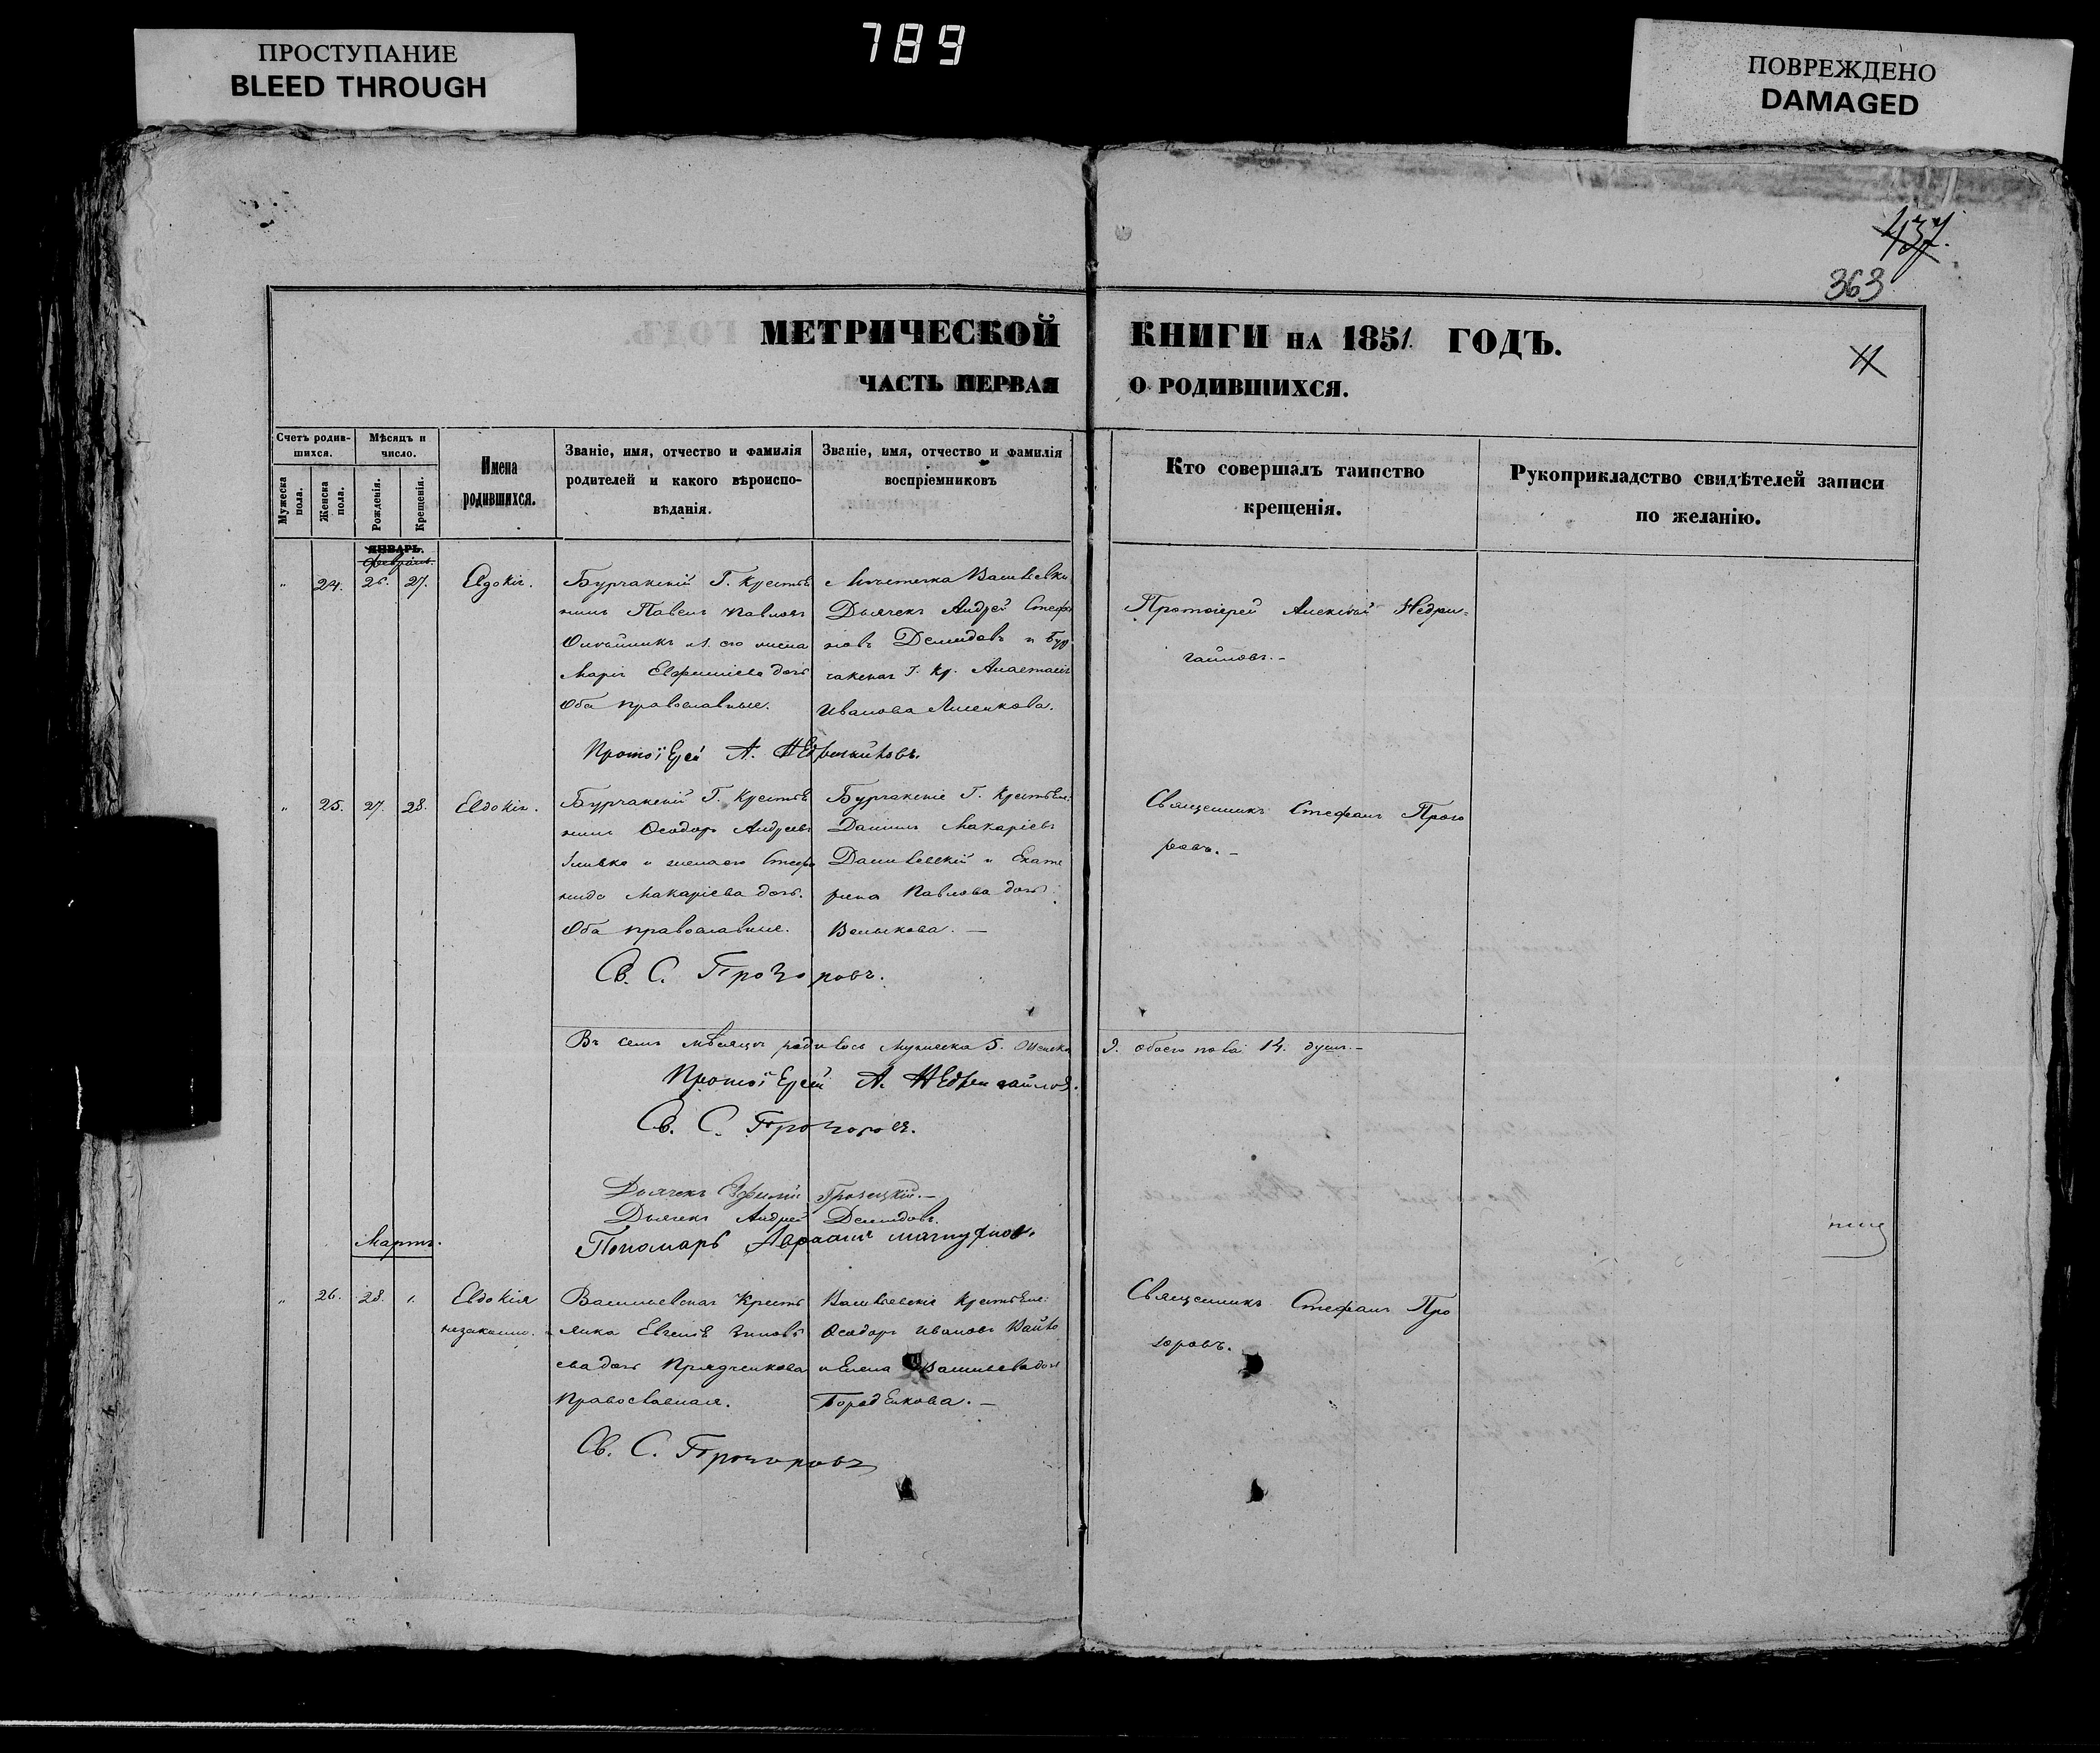 789
ПРОСТУПАНИЕ
BLEED THROUGH
ПОВРЕЖДЕНО
DAMAGED
437.
363
МЕТРИЧЕСКОЙ КНИГИ НА 1851 ГОДЪ.
ЧАСТЬ ПЕРВАЯ О РОДИВШИХСЯ.
Счетъ родив-
шихся.
Мужеска пола.
Женска пола.
Мѣсяцъ и
число.
Рожденія.
Крещенія.
Имена
родившихся.
Званіе, имя, отчество и фамилія
родителей и какого вѣроиспо-
вѣданія.
Званіе, имя, отчество и фамилія
воспріемниковъ
Кто совершалъ таинство
крещенія.
Рукоприкладство свидѣтелей записи
по желанію.
ЯНВАРЬ.
Февраль.
" 24. 26. 27. Евдокія.
Бурчакскій Г. Крестья
нинъ Павелъ Павловъ
Олейникъ и его жена
Марія Евфиміева дочь
Оба православные.
Местечка Васильевки
Дьячекъ Андрей Стефа
новъ Демидовъ и Бур
чакская Г. Кр. Анастасія
Иванова
Протоіерей Алексѣй Недри-
гайловъ.-
Протоіерей А. Недригайловъ.
" 25. 27. 28. Евдокія.
Бурчакскій Г. Крестья
нинъ Ѳеодоръ Андреевъ
и жена его Стефа
нида Макаріева дочь.
Оба православные.
Бурчакскіе Г. Крестьяне:
Даніилъ Макаріевъ
Данилевскій и Екате
рина Павлова дочь
Волыкова. —
Священникъ Стефанъ Прозо
ровъ. –
Св. С. Прозоровъ.
Въ семъ мѣсяцѣ родилось мужеска 5. женска 9. обоего пола 14. душъ.–
Протоіерей А. Недригайловъ.
Св. С. Прозоровъ.
Дьячекъ Ефимій Грозецкій.–
Дьячекъ Андрей Демидовъ.
Пономарь Авраамъ
Мартъ.
" 26. 28. 1. Евдокія
незаконно.
Васильевская Крестья
янка Евгенія Зинові
ева дочь Прядченкова
Православная.
Васильевскіе Крестьяне:
Ѳеодоръ Ивановъ Вайло
и Елена Васильева дочь
Бородѣнкова. —
Священникъ Стефанъ Про
зоровъ.
Св. С. Прозоровъ